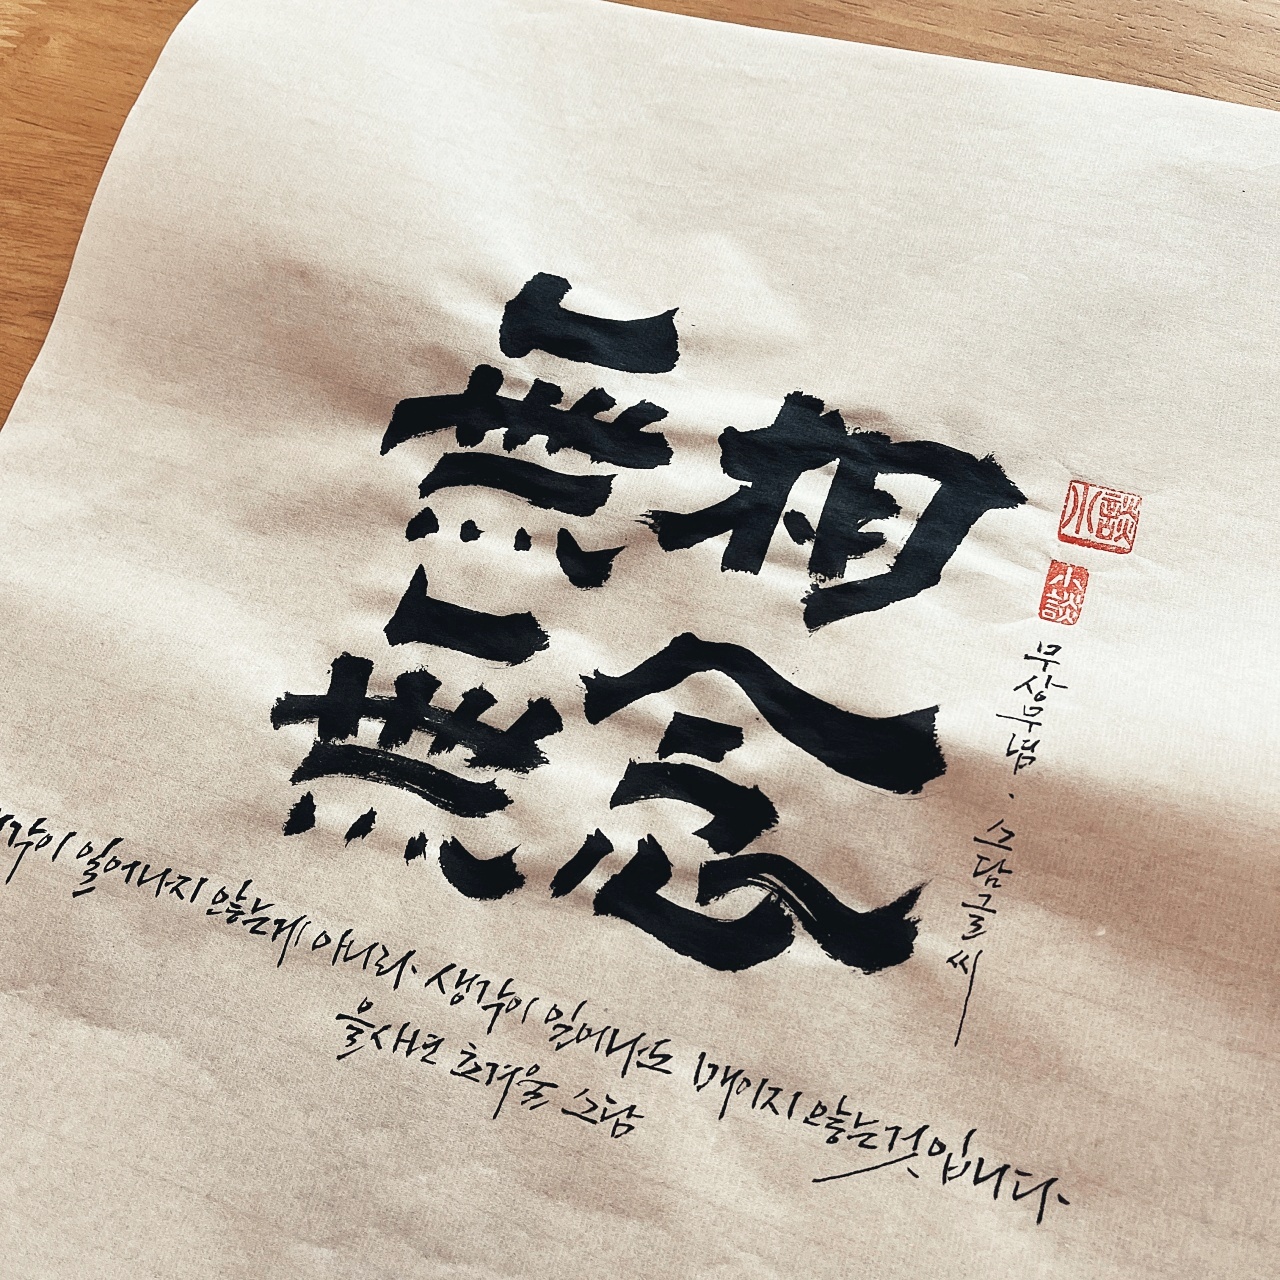 無相
無念
小談
小談
무상무념 · 소담글씨
생각이 일어나지 않는게 아니라 생각이 일어나도 매이지 않는것입니다
을사년 초겨울 소담